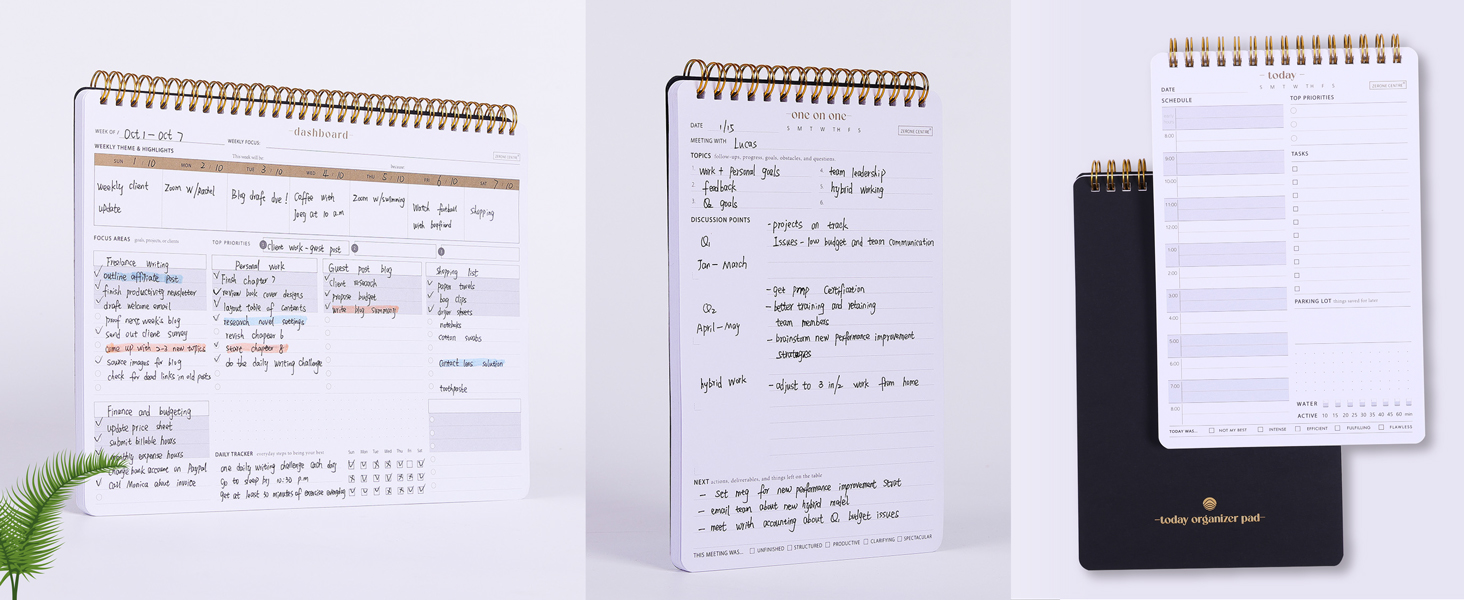 -dashboard-
WEEK OF / Oct 1 - Oct 7
WEEKLY FOCUS
ZERONE CENTRE
WEEKLY THEME & HIGHLIGHTS
This week will be
because
SUN 1 / 10 MON 2 / 10 TUE 3 / 10 WED 4 / 10 THU 5 / 10 FRI 6 / 10 SAT 7 / 10
weekly client
update
Zoom w/
Blog draft due !
Coffee with
Joey at 10 a.m
Zoom w/swimming
Watch football
with boyfriend
shopping
FOCUS AREAS goals, projects, or clients
TOP PRIORITIES 1 client work - guest post 2 3
Freelance Writing
outline affiliate post
finish productivity newsletter
draft welcome email
proof next week's blog
send out client survey
come up with 2-3 new topics
source images for blog
check for dead links in old posts
Personal work
Finsh chapter 7
review book cover designs
layout table of contents
research novel settings
revish chapter 6
start chapter 8
do the daily writing challenge
Guest post blog
client research
propose budget
write blog summary
Shopping list
paper towels
bag clips
dryer sheets
notebooks
cotton swabs
contact lens solution
toothpaste
Finance and budgeting
update price sheet
submit billable hours
monthly expense hours
change bank account on Paypal
Call Monica about invoice
DAILY TRACKER everyday steps to being your best
Sun Mon Tue Wed Thu Fri Sat
one daily writing challenge each day
Go to sleep by 10:30 p.m
Get at least 30 minutes of exercise everyday
-one on one-
DATE 1/15
S M T W T H F S
ZERONE CENTRE
MEETING WITH Lucas
TOPICS follow-ups, progress, goals, obstacles, and questions.
1. work + Personal goals
2. feedback
3. Q2 goals
4. team leadership
5. hybrid working
6.
DISCUSSION POINTS
Q1
Jan - March
- projects on track
Issues - low budget and team communication
Q2
April - May
- get pmp Certsfication
- better training and retaining
team members
- brainstorm new performance improvement
strategies
hybrid work
- adjust to 3 in/2 work from home
NEXT actions, deliverables, and things left on the table
- set mtg for new performance improvement strat
- email team about new hybrid model
- meet wrth accounting about Q1 budget issues
THIS MEETING WAS... UNFINISHED STRUCTURED PRODUCTIVE CLARIFYING SPECTACULAR
-today-
DATE
S M T W T H F S
ZERONE CENTRE
SCHEDULE
8:00
9:00
10:00
11:00
12:00
1:00
2:00
3:00
4:00
5:00
6:00
7:00
8:00
TOP PRIORITIES
TASKS
PARKING LOT things saved for later
WATER
ACTIVE 10 15 20 25 30 35 40 45 60 min
TODAY WAS... NOT MY BEST INTENSE EFFICIENT FULFILLING FLAWLESS
-today organizer pad-